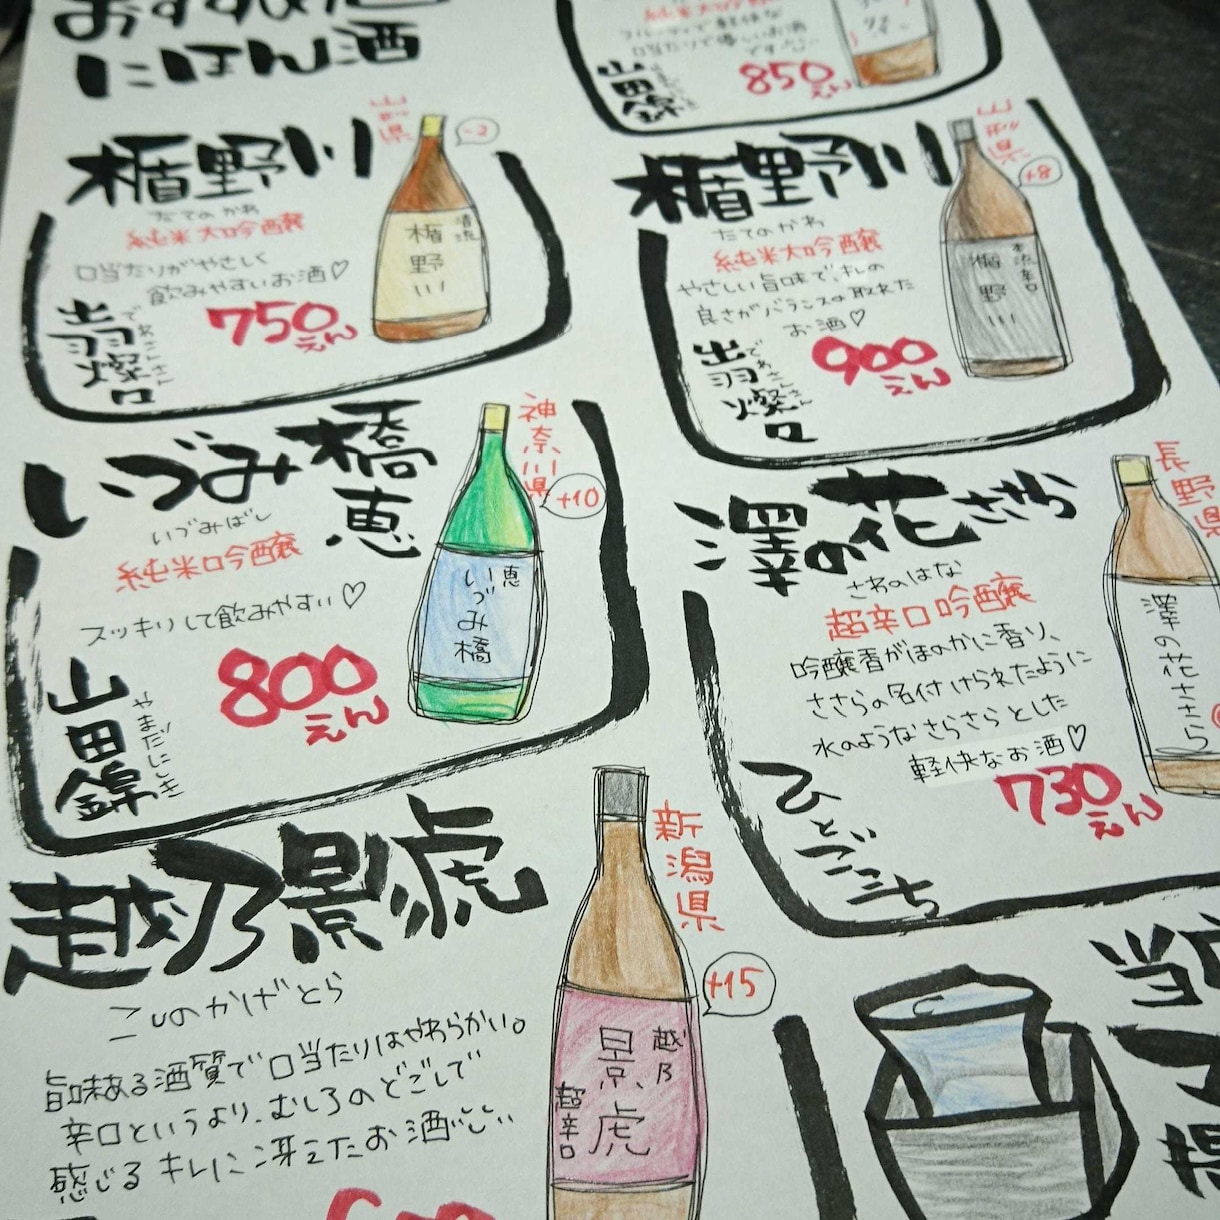 おすすめ酒
にほん酒
純米大吟醸
フルーティで軽快な
口当たりで優しいお酒
です
山田錦
850えん
楯野川
山形県
-2
たてのかわ
純米大吟醸
口当たりがやさしく
飲みやすいお酒♡
出羽燦々
でわさんさん
750えん
清流
楯野川
楯野川
山形県
+8
たてのかわ
純米大吟醸
やさしい旨味で、キレの
良さがバランスの取れた
お酒♡
出羽燦々
でわさんさん
900えん
本流辛口
楯野川
いづみ橋
恵
神奈川県
+10
いづみばし
純米吟醸
スッキリして飲みやすい♡
山田錦
やまだにしき
800えん
恵
いづみ橋
澤の花 ささら
長野県
さわのはな
超辛口吟醸
吟醸香がほのかに香り、
ささらの名付けられたように
水のようなさらさらとした
軽快なお酒♡
ひとごこち
730えん
澤の花ささら
越乃景虎
新潟県
+15
こしのかげとら
旨味ある酒質で口当たりはやわらかい。
辛口というより、むしろのどごしで
感じるキレに冴えたお酒
越乃
景虎
超辛口
当